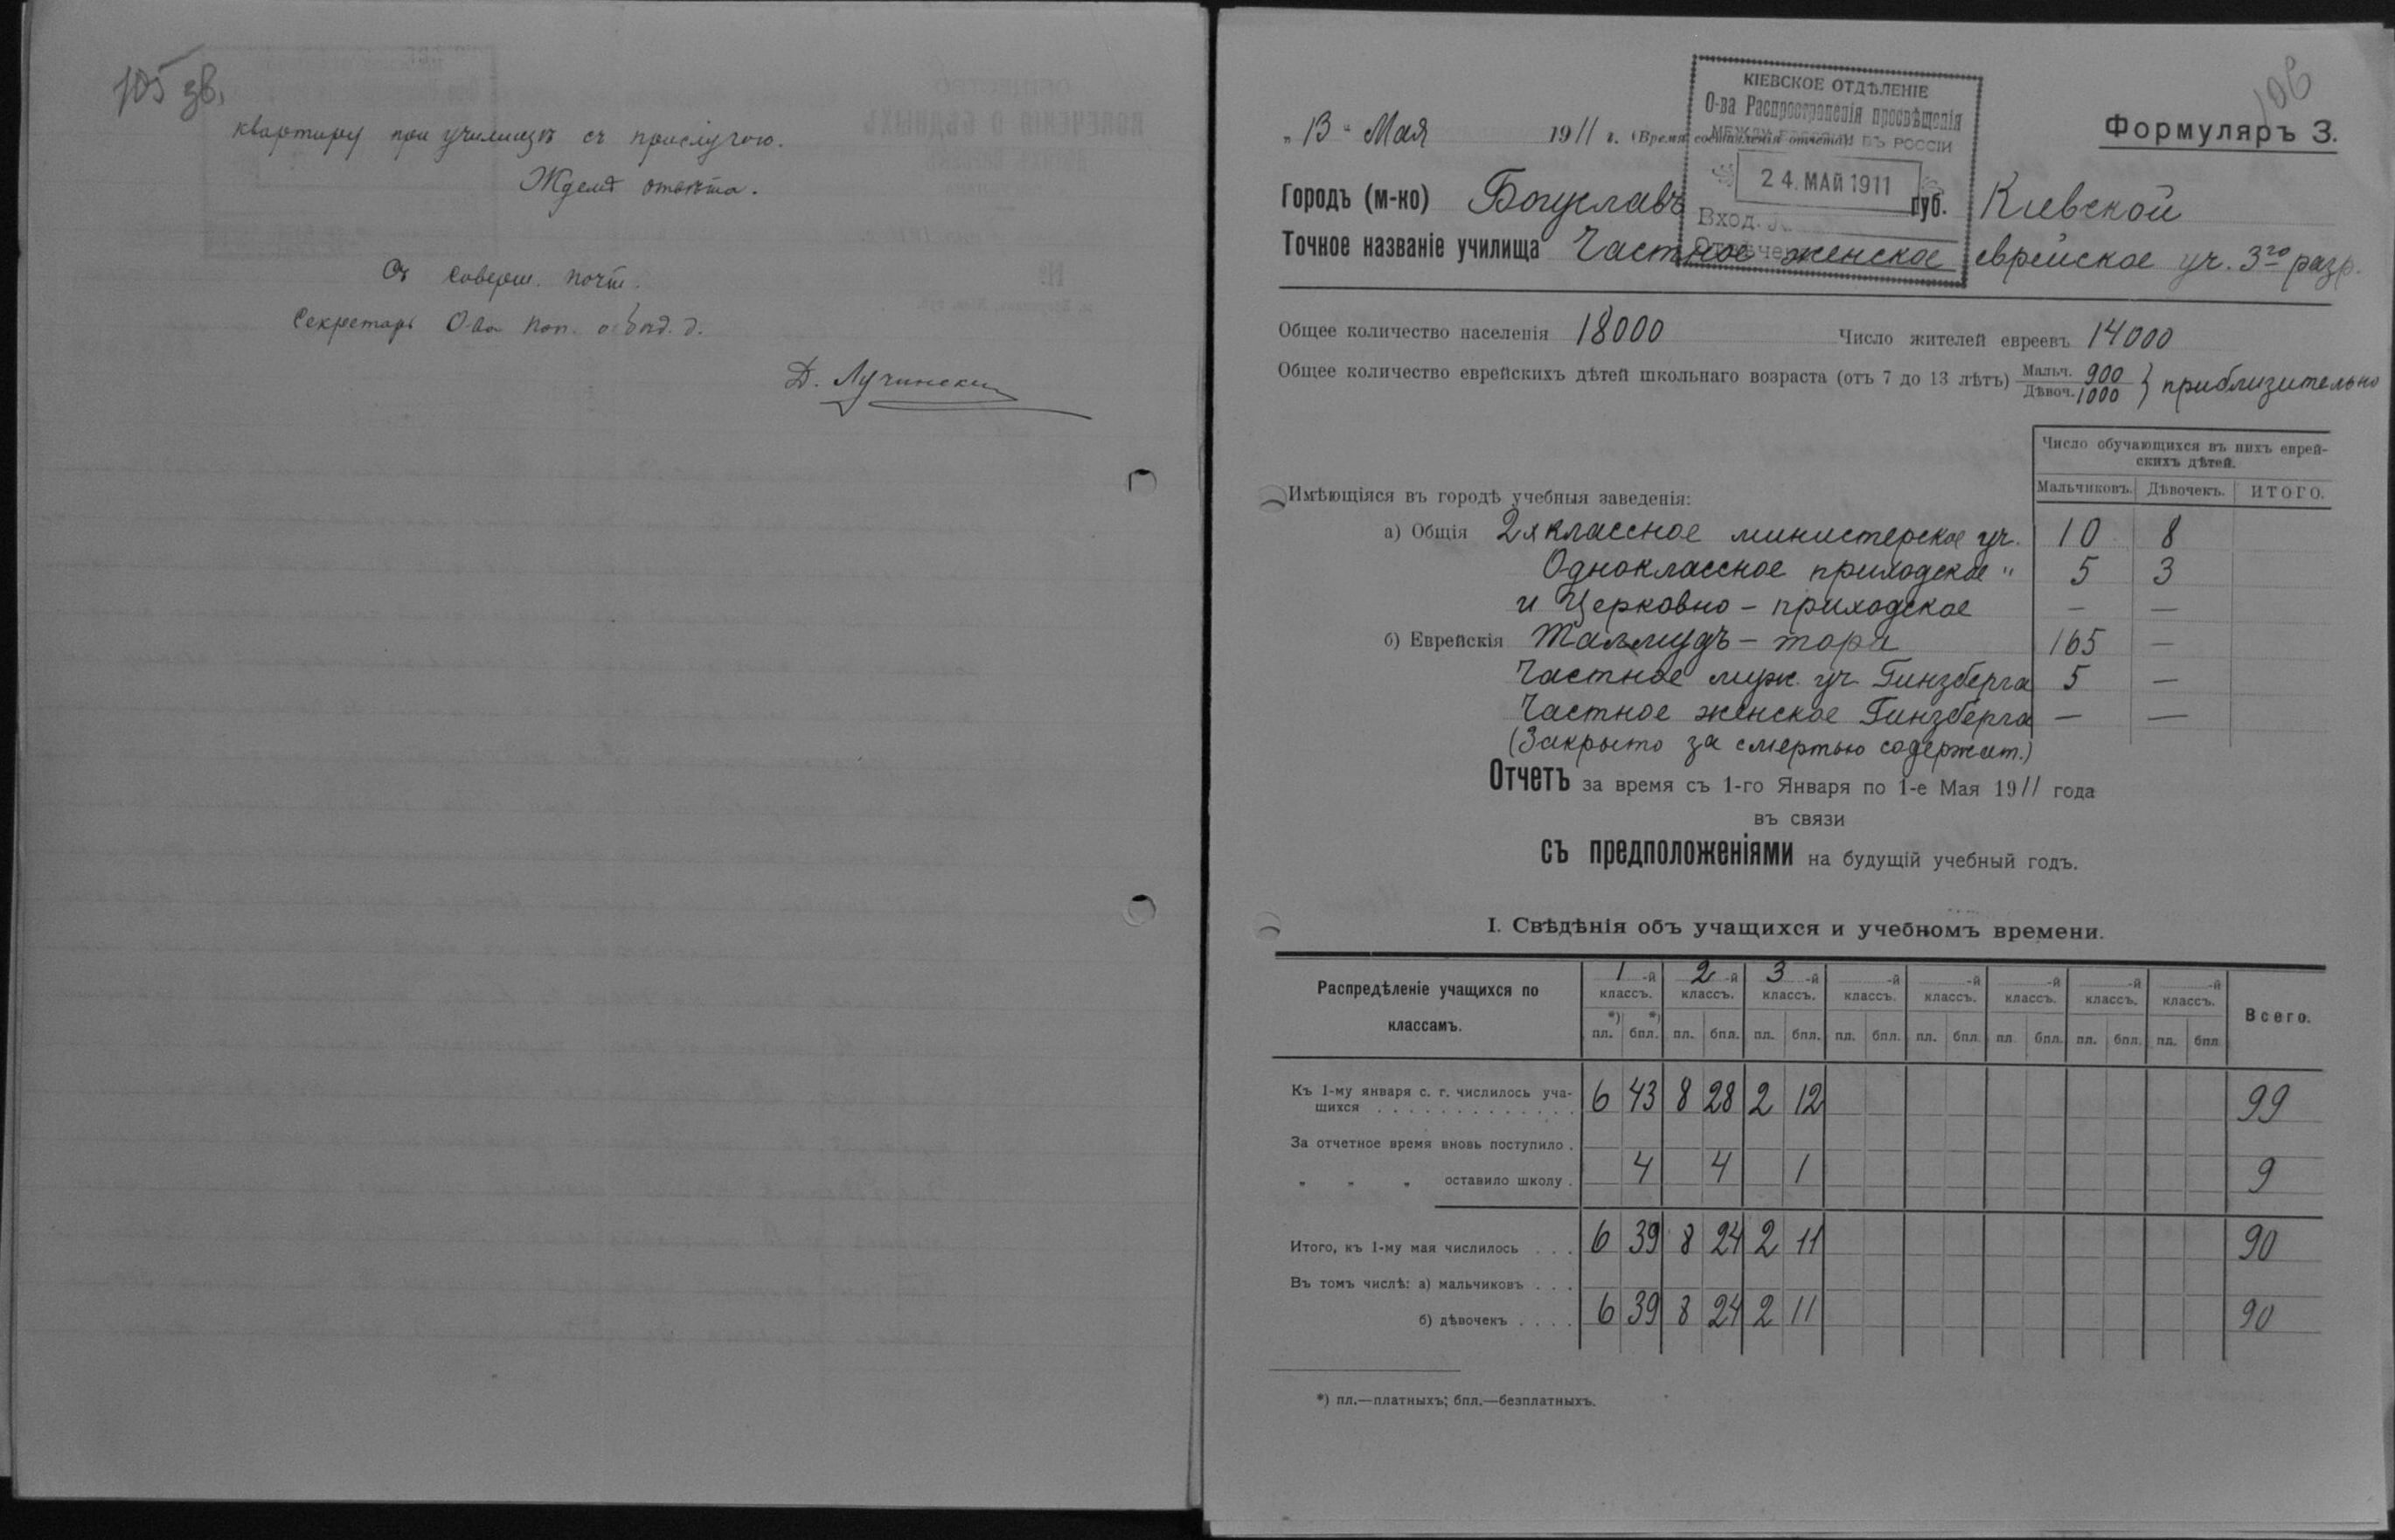 105 зв.
квартиру при училищѣ съ прислугою.
Ждемъ отвѣта.
Съ соверш. почт.
Секретарь О-ва поп. о бѣд. д.
Д. Лучински
106
Формуляръ 3.
КІЕВСКОЕ ОТДѢЛЕНІЕ
О-ва Распространенія просвѣщенія
МЕЖДУ ЕВРЕЯМИ ВЪ РОССІИ
24. МАЙ 1911
Вход. №
Отвѣчено
„13“ Мая 1911 г. (Время составленія отчета)
Городъ (м-ко) Богуславъ губ. Кіевской
Точное названіе училища Частное женское еврейское уч. 3го разр.
Общее количество населенія 18000 Число жителей евреевъ 14000
Общее количество еврейскихъ дѣтей школьнаго возраста (отъ 7 до 13 лѣтъ) Мальч. 900 Дѣвоч. 1000 } приблизительно
Число обучающихся въ нихъ еврей-
скихъ дѣтей.
Мальчиковъ. Дѣвочекъ. ИТОГО.
Имѣющіяся въ городѣ учебныя заведенія:
а) Общія 2х классное министерское уч. 10 8
Одноклассное приходское " 5 3
и Церковно-приходское — —
б) Еврейскія Талмудъ-тора 165 —
Частное муж. уч. Гинзберга 5 —
Частное женское Гинзберга — —
(Закрыто за смертью содержат.)
Отчетъ за время съ 1-го Января по 1-е Мая 1911 года
въ связи
съ предположеніями на будущій учебный годъ.
I. Свѣдѣнія объ учащихся и учебномъ времени.
Распредѣленіе учащихся по классамъ. 1-й классъ. 2-й классъ. 3-й классъ. -й классъ. -й классъ. -й классъ. -й классъ. -й классъ. Всего.
*) пл. *) бпл. пл. бпл. пл. бпл. пл. бпл. пл. бпл. пл. бпл. пл. бпл. пл. бпл.
Къ 1-му января с. г. числилось уча-
щихся 6 43 8 28 2 12 99
За отчетное время вновь поступило .
„ „ „ оставило школу . 4 4 1 9
Итого, къ 1-му мая числилось . . . 6 39 8 24 2 11 90
Въ томъ числѣ: а) мальчиковъ . . .
б) дѣвочекъ . . . . 6 39 8 24 2 11 90
*) пл.—платныхъ; бпл.—безплатныхъ.